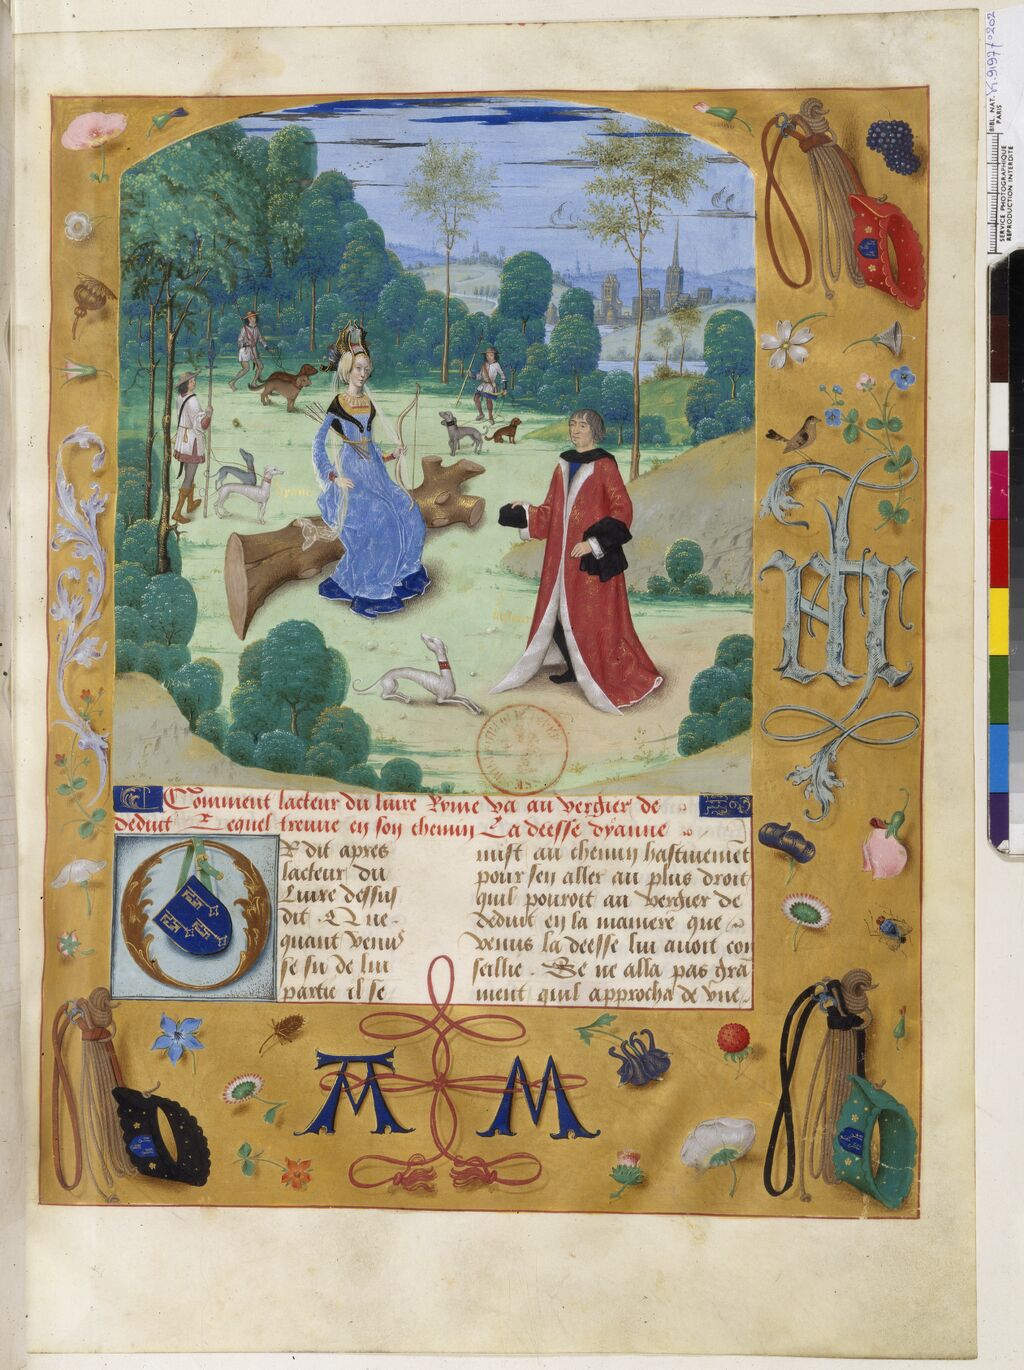 Comment lacteur du liure Ryme va au vergier de
deduit Lequel treuue en son chemin La deesse dyanne
OR dit apres
lacteur du
Liure dessus
dit Que
quant venus
se fu de lui
partie il se
mist au chemin hastiuemet
pour sen aller au plus droit
quil pouroit au vergier de
deduit en la maniere que
venus la deesse lui auoit con
seillie. Se ne alla pas gra
ment quil approcha de vne
AM M
BIBL. NAT.
PARIS
SERVICE PHOTOGRAPHIQUE
REPRODUCTION INTERDITE